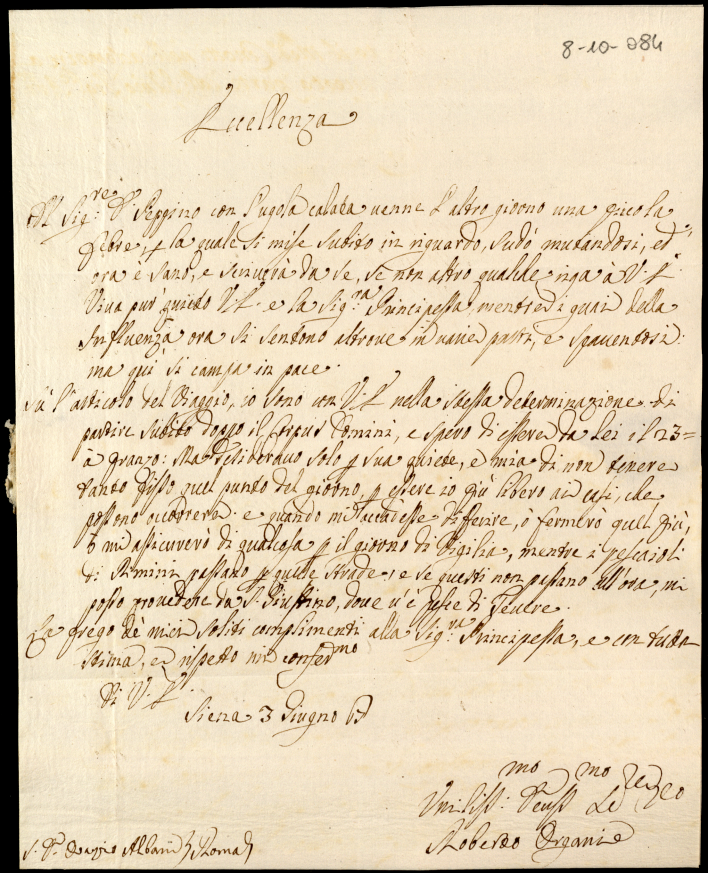 8-10-084
Eccellenza
Il Sig:re D. Peppino con l'ugola calata venne l'altro giorno una picola
febre, p la quale si mise subito in riguardo, sudò mutandosi, ed
ora è sano, e scriverà da se, se non altro qualche riga à V. E.
Viva pur quieto V. E. e la Sig:ra Principessa, mentre i guai della
Influenza ora si sentono altrove in varie parti, e spaventosi:
ma quì si campa in pace.
Sù l'articolo del Viaggio, io sono con V. E. nella stessa determinazione di
partire subito doppo il Corpus Domini, e spero di essere da Lei il 23=
à pranzo: Ma deliberavo solo p sua quiete, e mia di non tenere
tanto fisso quel punto del giorno, p essere io più libero ai casi, che
possono occorrere: e quando mi accadesse differire, ò fermerò quel più,
ò mi assicurerò di qualcosa p il giorno di Vigilia, mentre i pescaioli
di Rimini passano p quelle strade, e se questi non passano all'ora, mi
posso provedere da S. Giustino, dove v'è pesce di Tevere.
La prego de miei soliti complimenti alla Sig:ra Principessa, e con tutta
stima, e rispetto mi confermo
Di V. E.
Siena 3 Giugno
Umiliss:mo Devss:mo
Roberto Organi
S. D. Orazio Albani Roma